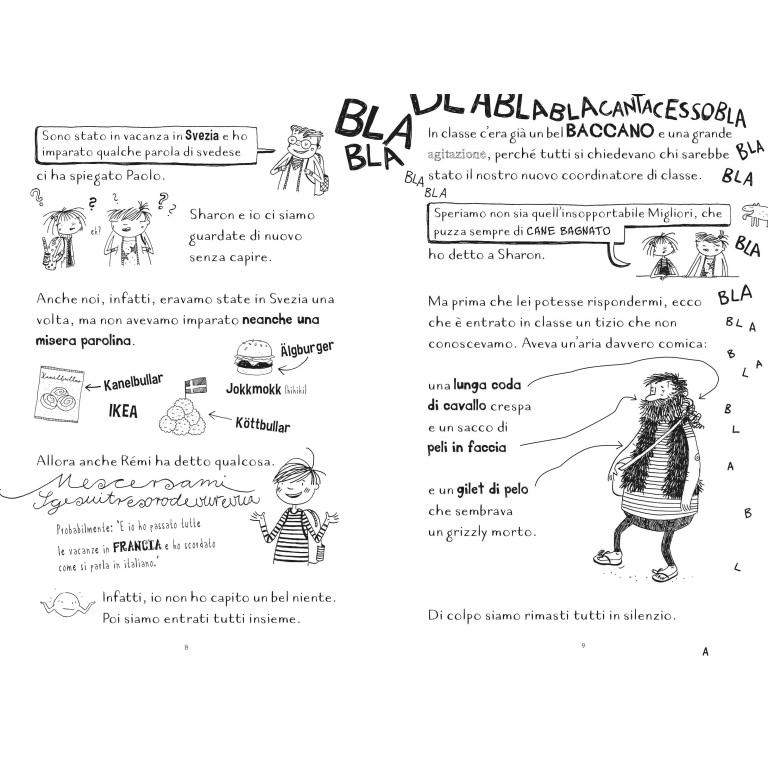 Sono stato in vacanza in Svezia e ho
imparato qualche parola di svedese
ci ha spiegato Paolo.
?
?
?
?
?
eh?
Sharon e io ci siamo
guardate di nuovo
senza capire.
Anche noi, infatti, eravamo state in Svezia una
volta, ma non avevamo imparato neanche una
misera parolina.
Älgburger
Kanelbullar
Kanelbullar
Jokkmokk (hihihi)
IKEA
Köttbullar
Allora anche Rémi ha detto qualcosa.
Mescersami
Probabilmente: "E io ho passato tutte
le vacanze in FRANCIA e ho scordato
come si parla in italiano."
Infatti, io non ho capito un bel niente.
Poi siamo entrati tutti insieme.
8
BLA
BLA
BLA
BLA
BLABLABLACANTACESSOBLA
In classe c'era già un bel BACCANO e una grande
agitazione, perché tutti si chiedevano chi sarebbe
stato il nostro nuovo coordinatore di classe.
BLA
BLA
Speriamo non sia quell'insopportabile Migliori, che
puzza sempre di CANE BAGNATO
BLA
ho detto a Sharon.
BLA
Ma prima che lei potesse rispondermi, ecco
che è entrato in classe un tizio che non
conoscevamo. Aveva un'aria davvero comica:
BLA
B
L
A
una lunga coda
di cavallo crespa
e un sacco di
peli in faccia
B
L
A
e un gilet di pelo
che sembrava
un grizzly morto.
B
L
Di colpo siamo rimasti tutti in silenzio.
9
A